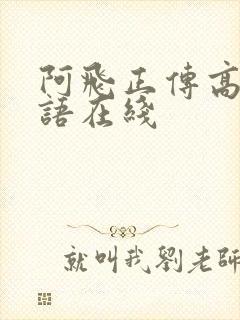 阿飛正傳高
語在綫
就叫我劉老師